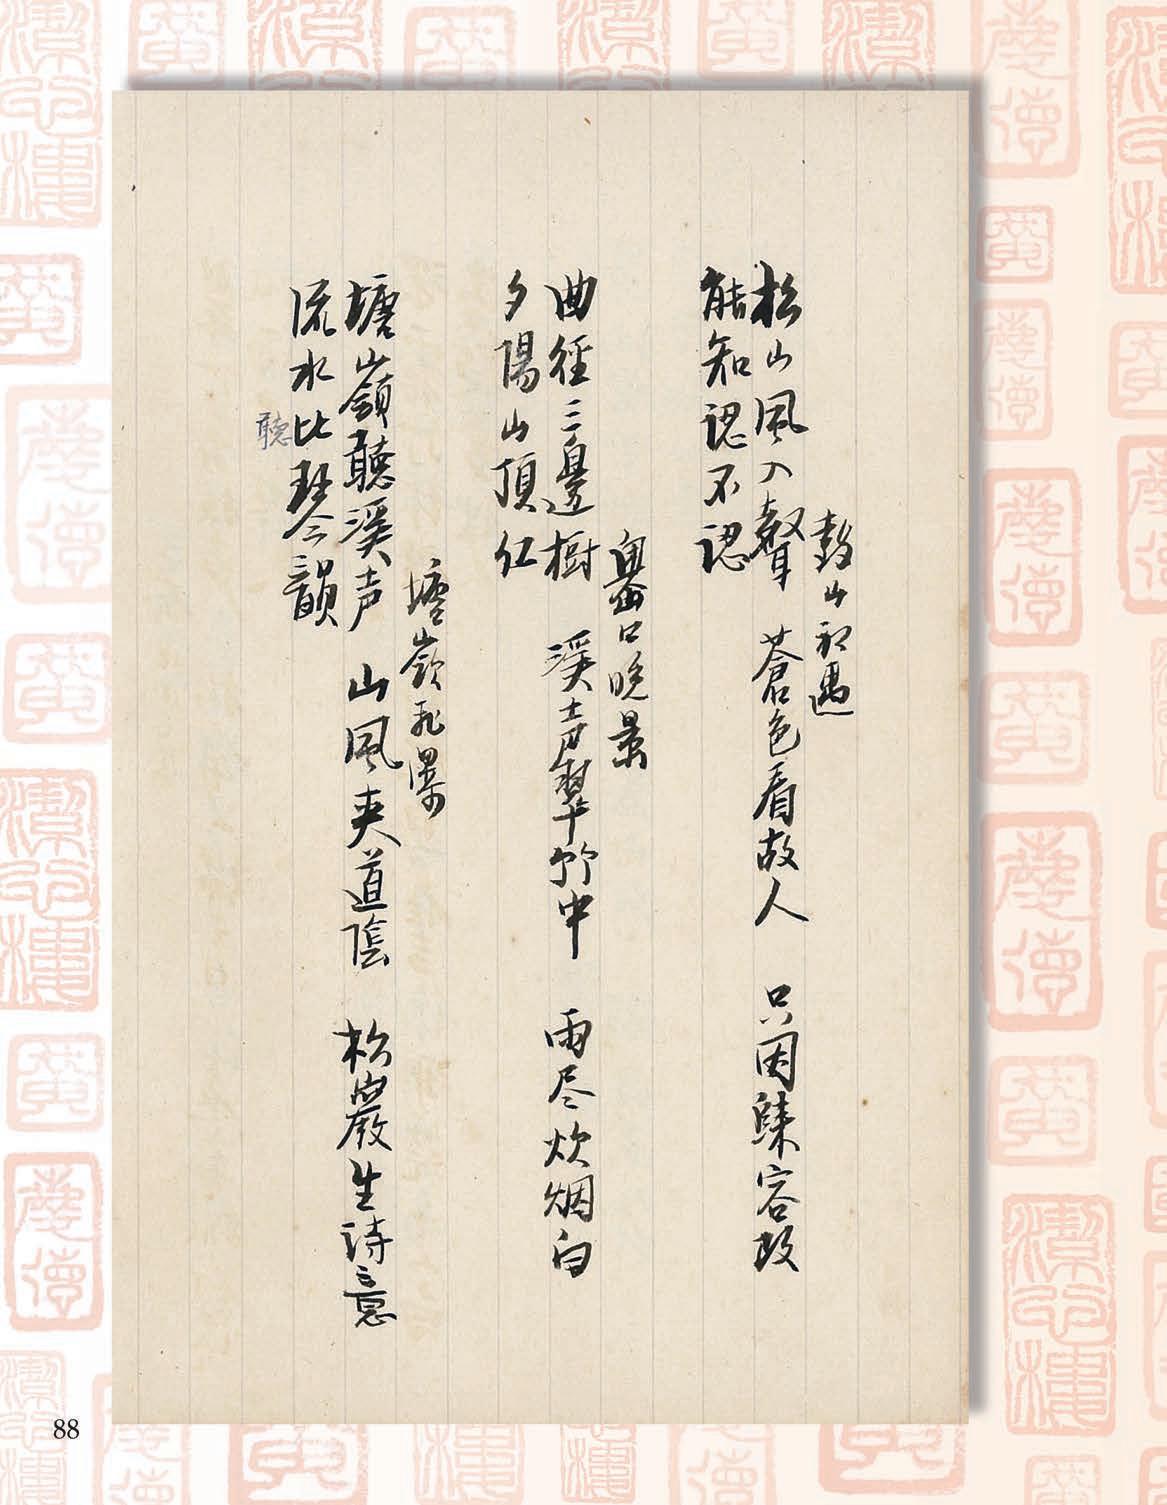 鼓山初遇
松山風入聲 蒼色看故人 只因容改
能知認不認
口晚景
曲徑三邊樹 溪声翠竹中 雨尽炊烟白
夕陽山頂红
塘嶺飛瀑
塘嶺聽溪声 山風夾道陰 松巖生诗意
流水比琴韻
聽
88